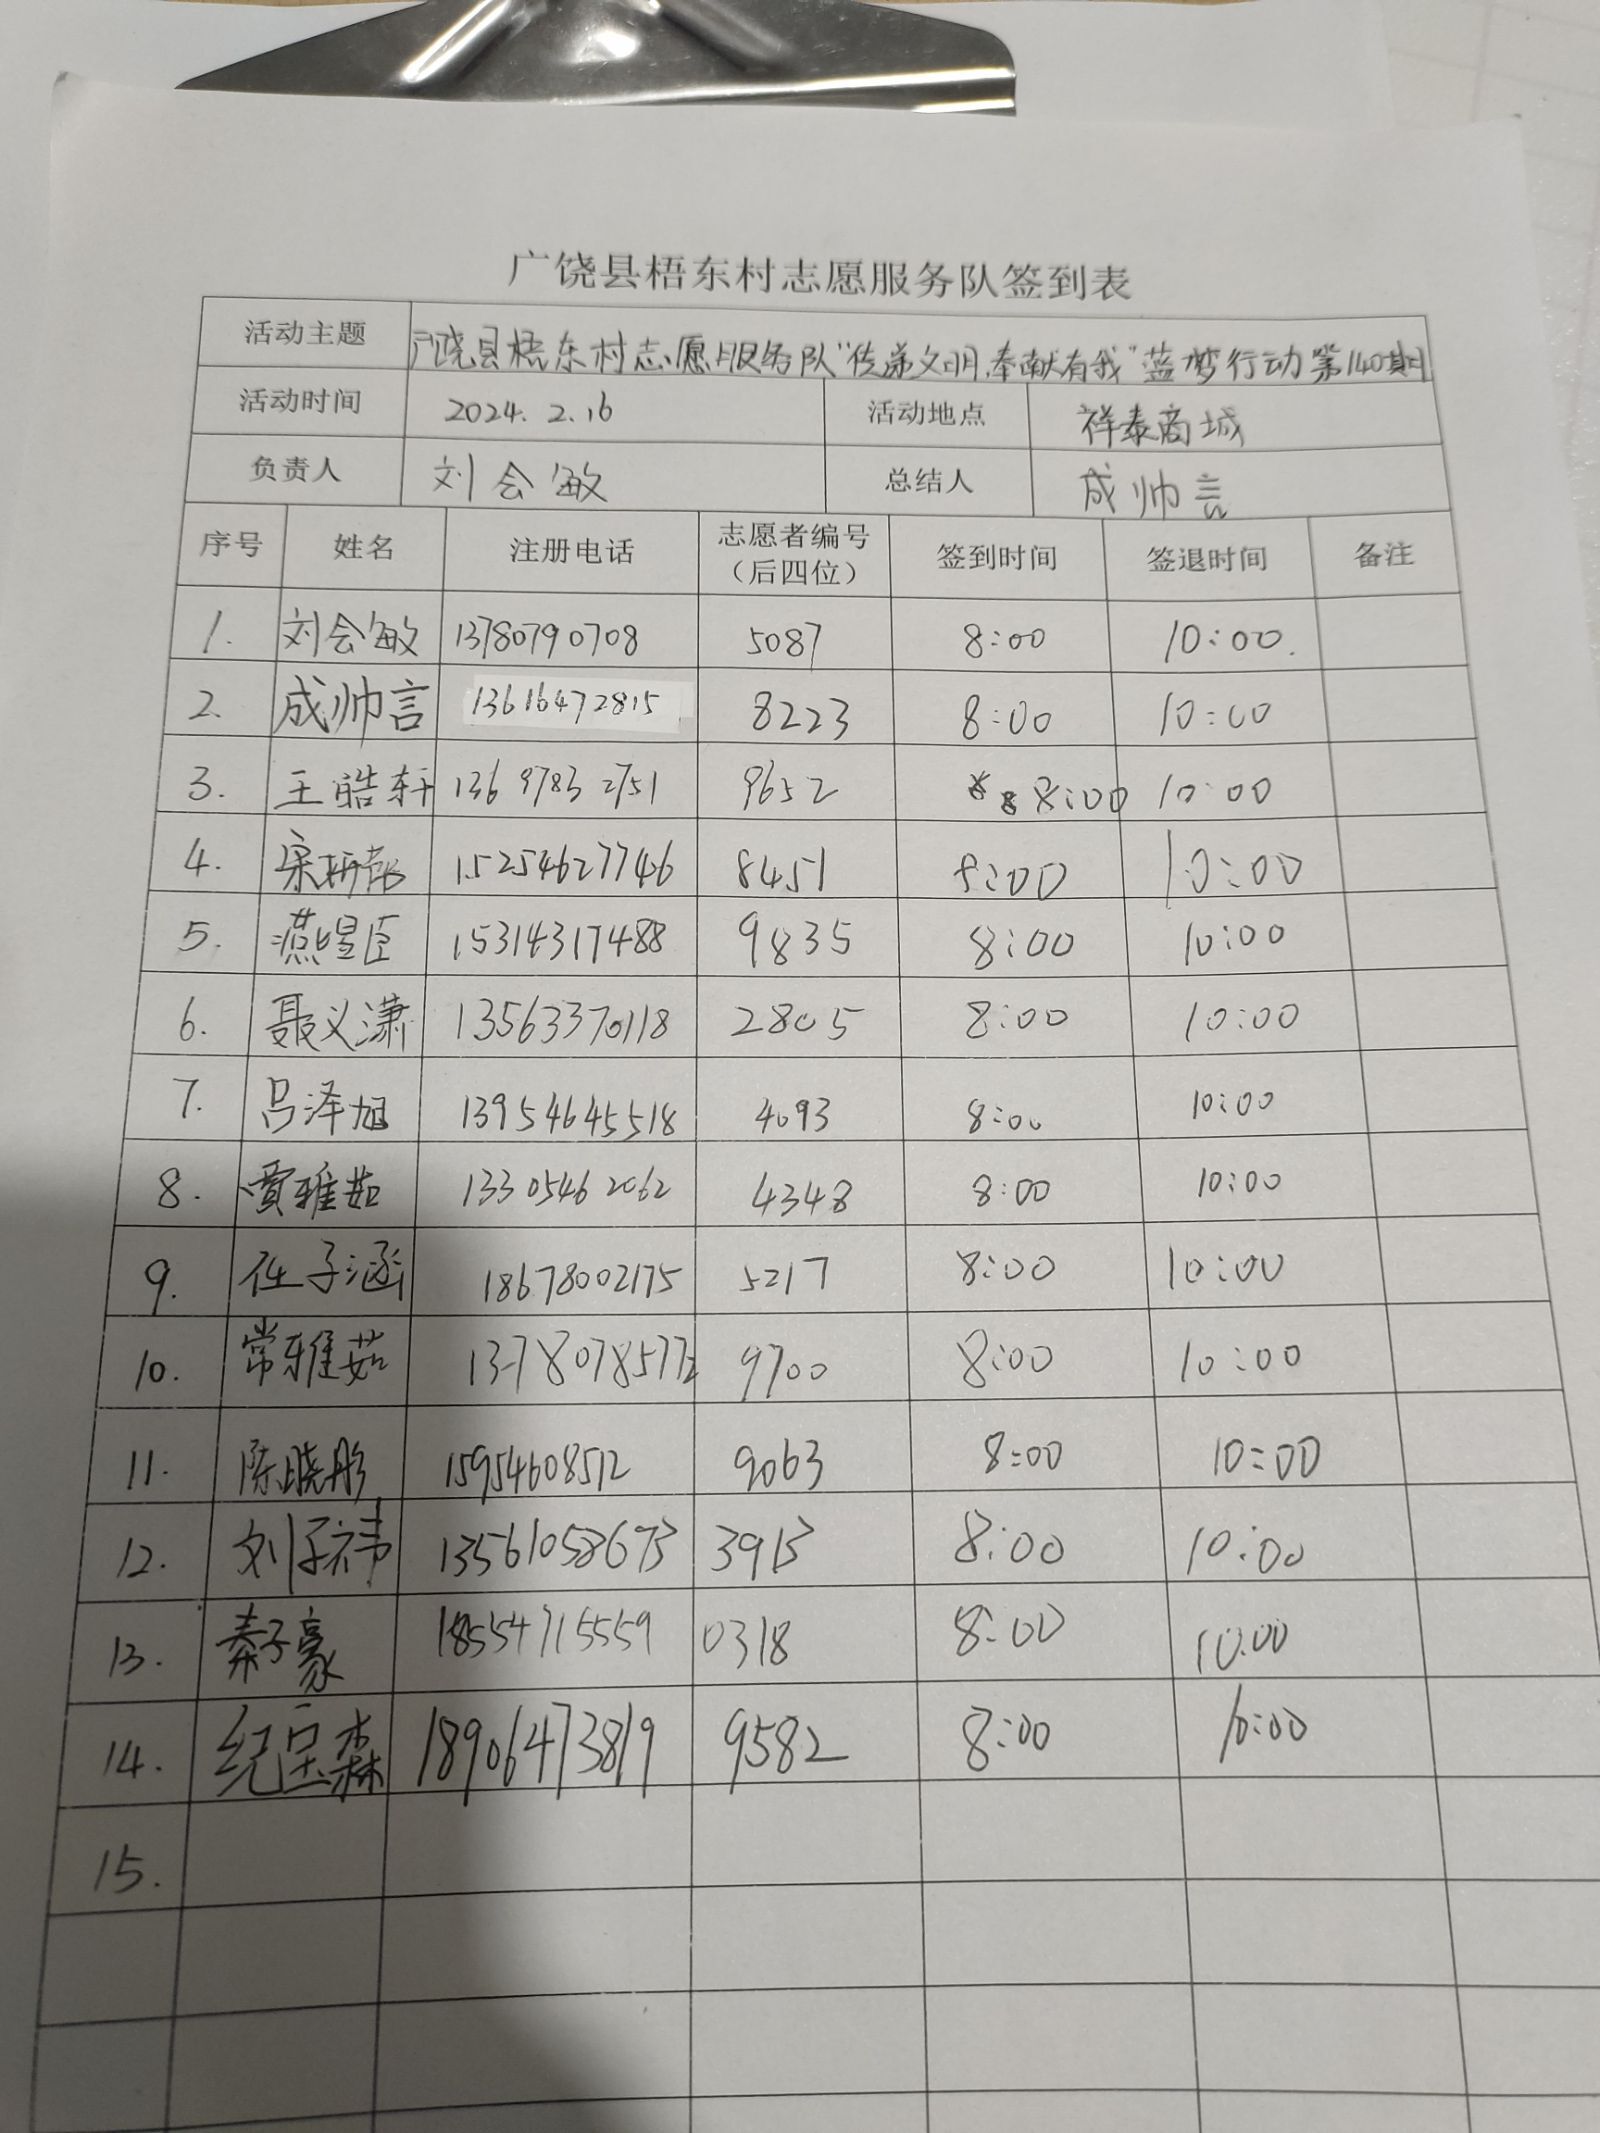 广饶县梧东村志愿服务队签到表
活动主题 广饶县梧东村志愿服务队“传递文明,奉献有我”蓝梦行动第140期
活动时间 2024.2.16 活动地点 祥泰商城
负责人 刘会敏 总结人 成帅言
序号 姓名 注册电话 志愿者编号（后四位） 签到时间 签退时间 备注
1. 刘会敏 13780790708 5087 8:00 10:00.
2. 成帅言 13616472815 8223 8:00 10:00
3. 王皓轩 13697832751 9652 8:00 10:00
4. 15254627746 8451 8:00 10:00
5. 燕煜臣 15314317488 9835 8:00 10:00
6. 聂义潇 13563370118 2805 8:00 10:00
7. 吕泽旭 13954645518 4093 8:00 10:00
8. 贾雅茹 13305462062 4348 8:00 10:00
9. 任子涵 18678002175 5217 8:00 10:00
10. 常雅茹 13780785772 9700 8:00 10:00
11. 陈晓彤 15954608512 9063 8:00 10:00
12. 刘子祎 13561058673 3913 8:00 10:00
13. 秦子豪 18554715559 0318 8:00 10.00
14. 纪呈森 18906473819 9582 8:00 10:00
15.